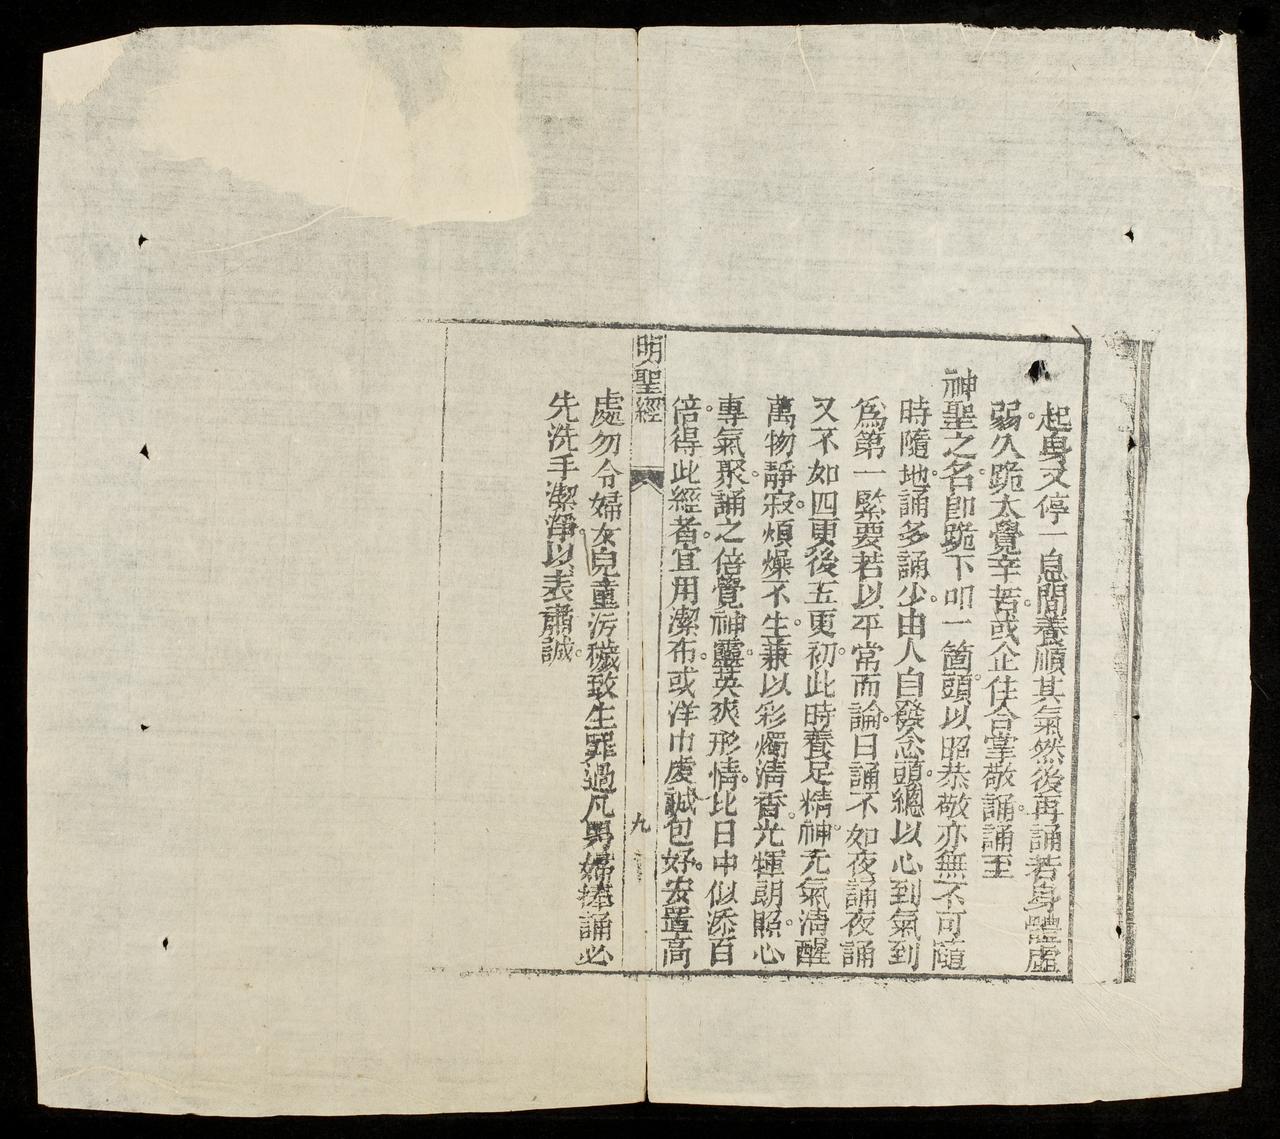 起身又停一息間養順其氣然後再誦若身體虛
弱久跪太覺辛苦。或企住合掌敬誦。誦至
神聖之名。即跪下叩一箇頭。以昭恭敬亦無不可隨
時隨地。誦多誦少。由人自發念頭。總以心到氣到
爲第一緊要若以平常而論。日誦不如夜誦夜誦
又不如四更後五更初。此時養足精神。元氣清醒
萬物靜寂。煩燥不生。兼以彩燭清香。光輝朗照。心
專氣聚。誦之倍覺神靈。英爽形情。比日中似添百
倍。得此經者。宜用潔布。或洋巾虔誠包好。安置高
明聖經
九
處勿令婦女兒童污穢致生罪過凡男婦捧誦必
先洗手潔淨。以表肅誠。